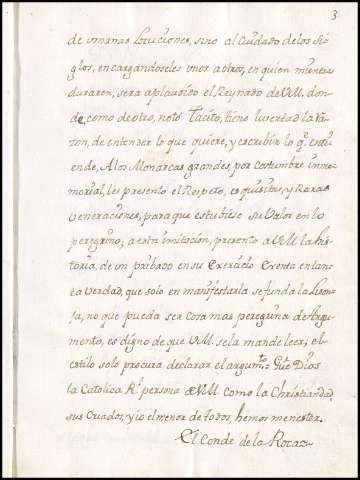 3
de umanas locuciones, sino al Cuidado de los Si
glos, encargandoseles unos a otros, en quien mientras
duraren, sera aplaudido el Reynado de V.M. don
de, como de otro, notó Tacito, tiene lugar la Ra
zon, de entender lo que quiere, y escribir lo q. enti
ende, A los Monarcas grandes, por Costumbre inme
morial, les presentó el Respeto, exquisitas, y Raras
Veneraciones, para que estubiese su Valor en lo
peregrino; a esta imitacion, presento a V.M. la his
toria, de un pribado en su Exercicio Exenta en tan
ta Verdad, que solo en manifestarla se funda la Lison
ja, no que pueda ser Cosa mas peregrina de Argu
mento, es digno de que V.M. se la mande leer, el
estilo solo procura declarar el argum.to Gu.e Dios
la Catolica R.l persona de V.M. como la Christiandad,
sus Criados, y io el menor de todos, hemos menester.
El Conde de la Roca